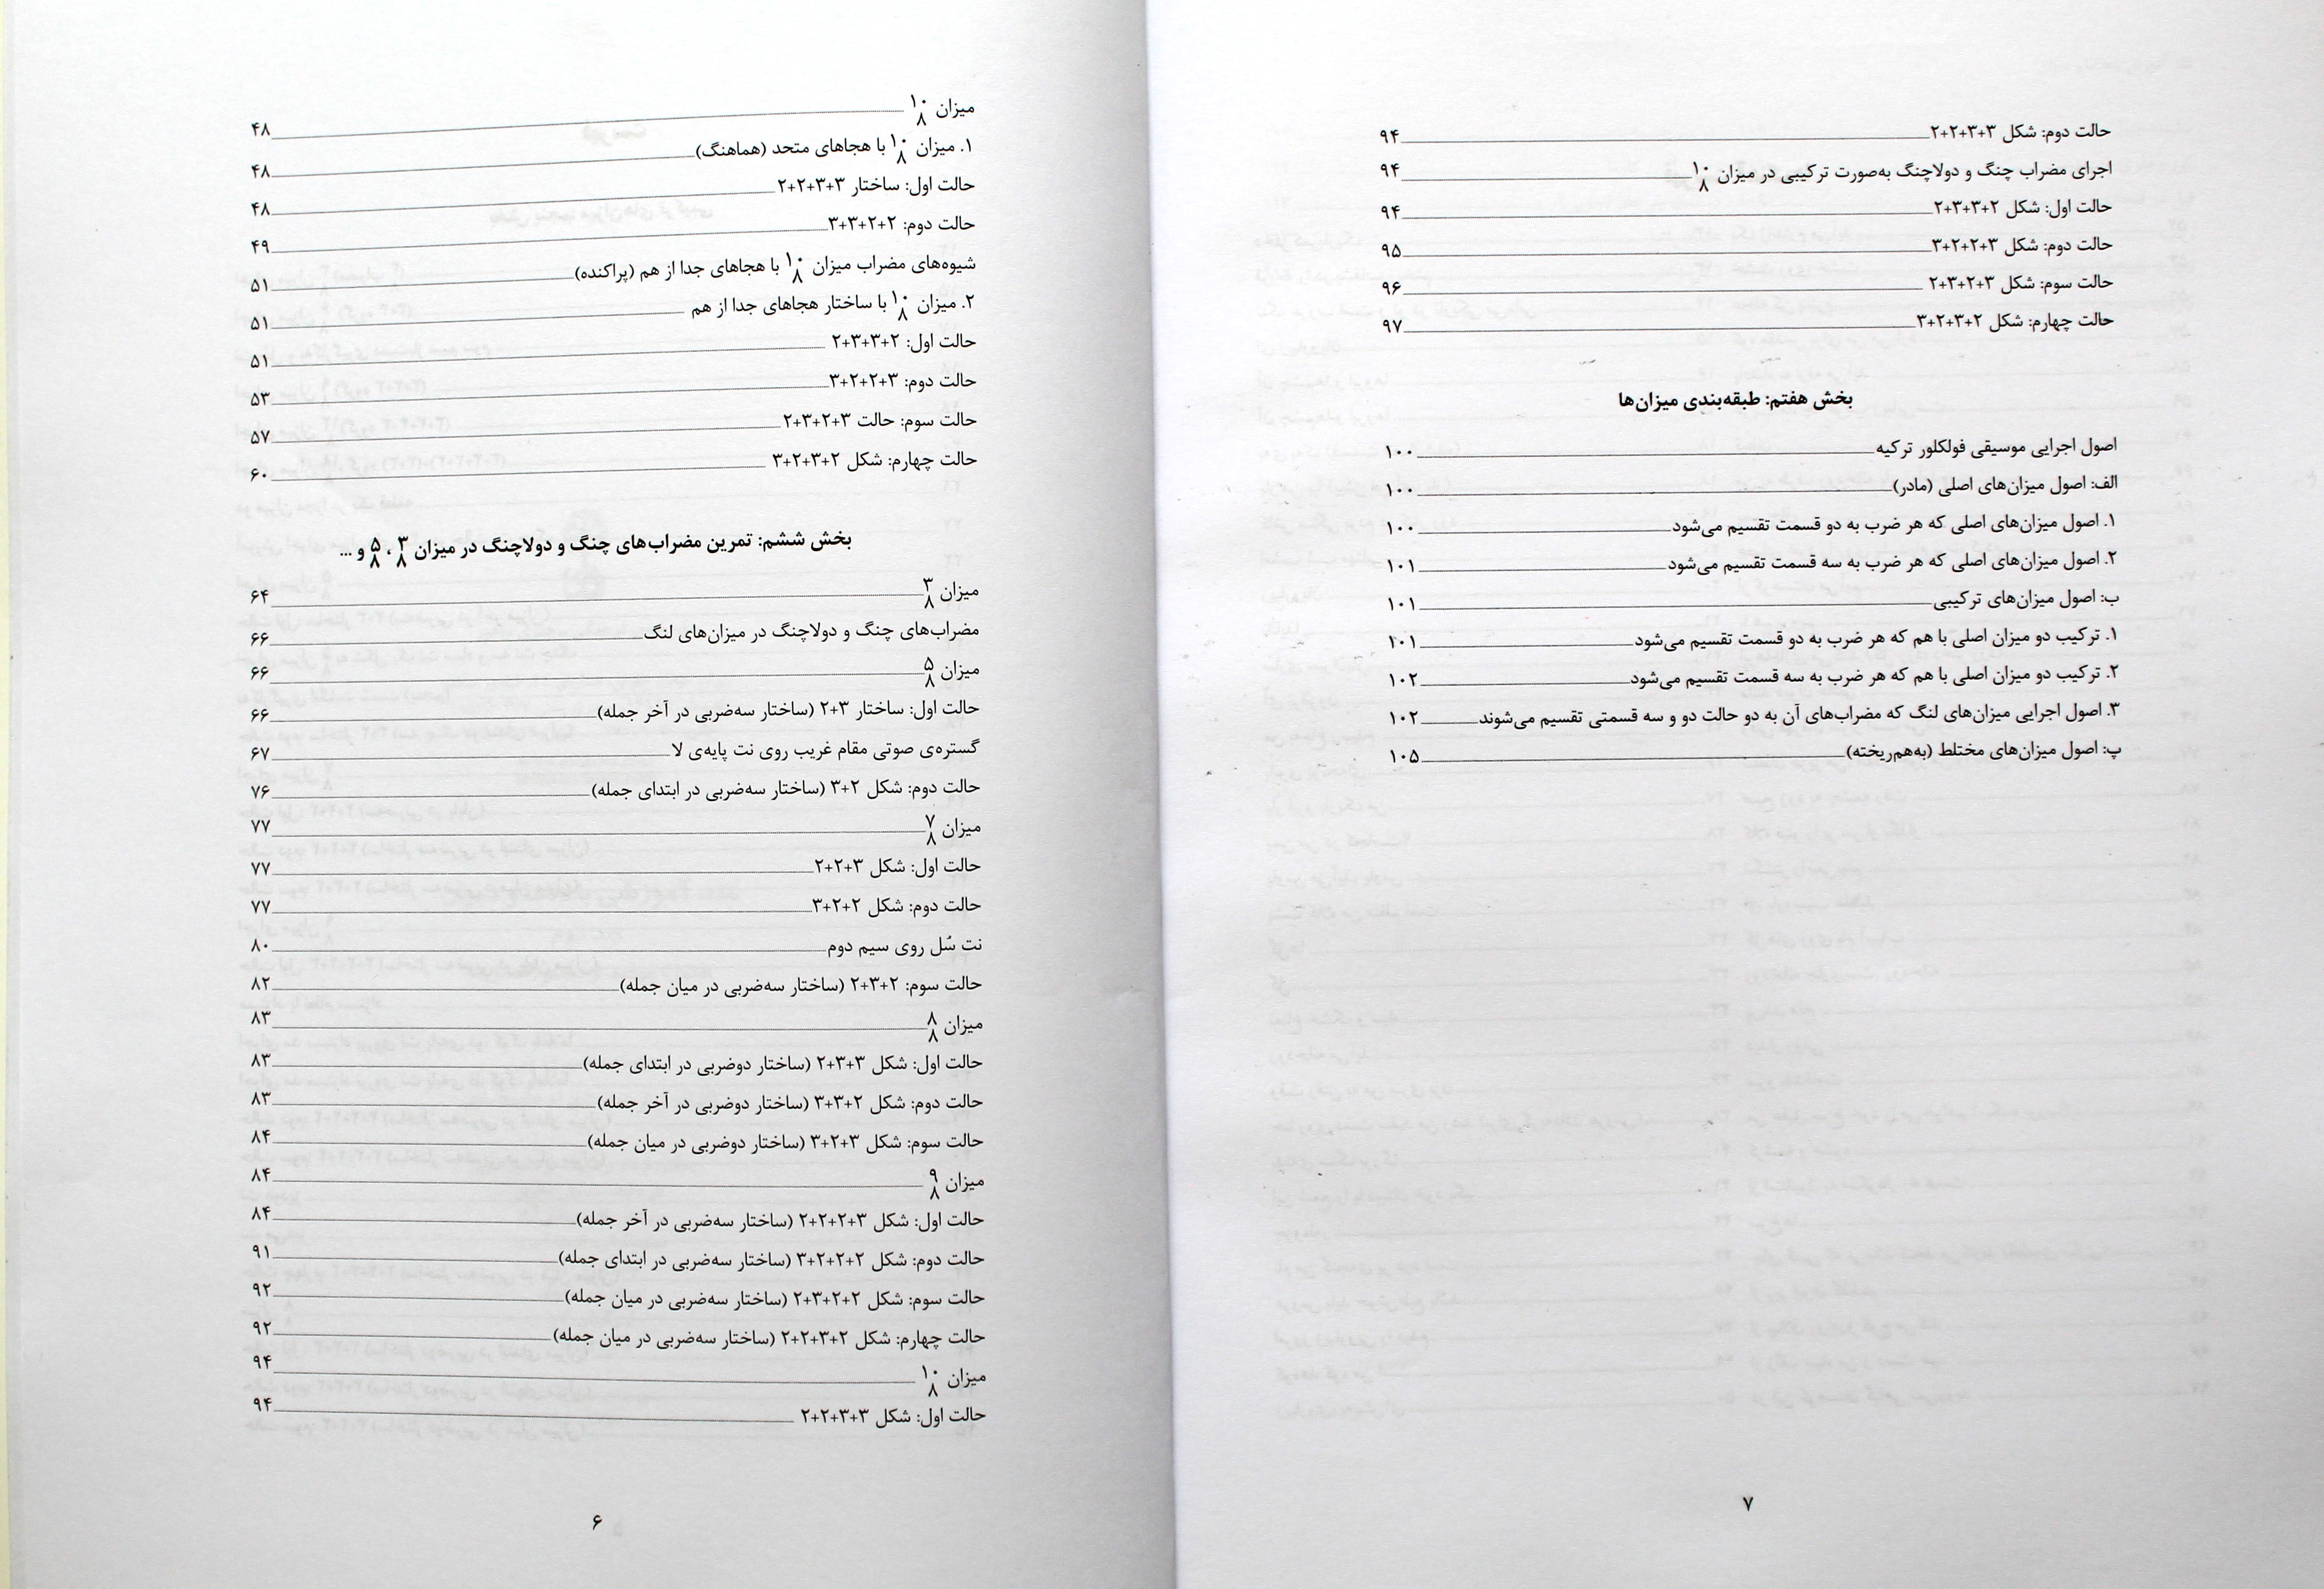 میزان ۱۰/۸ ۴۸
۱. میزان ۱۰/۸ با هجاهای متحد (هماهنگ) ۴۸
حالت اول: ساختار ۲+۲+۳+۳ ۴۸
حالت دوم: ۳+۳+۲+۲ ۴۹
شیوه‌های مضراب میزان ۱۰/۸ با هجاهای جدا از هم (پراکنده) ۵۱
۲. میزان ۱۰/۸ با ساختار هجاهای جدا از هم ۵۱
حالت اول: ۲+۳+۳+۲ ۵۱
حالت دوم: ۳+۲+۲+۳ ۵۳
حالت سوم: حالت ۲+۳+۲+۳ ۵۷
حالت چهارم: شکل ۳+۲+۳+۲ ۶۰
بخش ششم: تمرین مضراب‌های چنگ و دولاچنگ در میزان ۳/۸، ۵/۸ و ...
میزان ۳/۸ ۶۴
مضراب‌های چنگ و دولاچنگ در میزان‌های لنگ ۶۶
میزان ۵/۸ ۶۶
حالت اول: ساختار ۲+۳ (ساختار سه‌ضربی در آخر جمله) ۶۶
گستره‌ی صوتی مقام غریب روی نت پایه‌ی لا ۶۷
حالت دوم: شکل ۳+۲ (ساختار سه‌ضربی در ابتدای جمله) ۷۶
میزان ۷/۸ ۷۷
حالت اول: شکل ۲+۲+۳ ۷۷
حالت دوم: شکل ۳+۲+۲ ۷۷
نت سُل روی سیم دوم ۸۰
حالت سوم: ۲+۳+۲ (ساختار سه‌ضربی در میان جمله) ۸۲
میزان ۸/۸ ۸۳
حالت اول: شکل ۲+۳+۳ (ساختار دوضربی در ابتدای جمله) ۸۳
حالت دوم: شکل ۳+۳+۲ (ساختار دوضربی در آخر جمله) ۸۳
حالت سوم: شکل ۳+۲+۳ (ساختار دوضربی در میان جمله) ۸۴
میزان ۹/۸ ۸۴
حالت اول: شکل ۲+۲+۲+۳ (ساختار سه‌ضربی در آخر جمله) ۸۴
حالت دوم: شکل ۳+۲+۲+۲ (ساختار سه‌ضربی در ابتدای جمله) ۹۱
حالت سوم: شکل ۲+۳+۲+۲ (ساختار سه‌ضربی در میان جمله) ۹۲
حالت چهارم: شکل ۲+۲+۳+۲ (ساختار سه‌ضربی در میان جمله) ۹۲
میزان ۱۰/۸ ۹۴
حالت اول: شکل ۲+۲+۳+۳ ۹۴
۶
حالت دوم: شکل ۲+۲+۳+۳ ۹۴
اجرای مضراب چنگ و دولاچنگ به‌صورت ترکیبی در میزان ۱۰/۸ ۹۴
حالت اول: شکل ۲+۳+۳+۲ ۹۴
حالت دوم: شکل ۳+۲+۲+۳ ۹۵
حالت سوم: شکل ۲+۳+۲+۳ ۹۶
حالت چهارم: شکل ۳+۲+۳+۲ ۹۷
بخش هفتم: طبقه‌بندی میزان‌ها
اصول اجرایی موسیقی فولکلور ترکیه ۱۰۰
الف: اصول میزان‌های اصلی (مادر) ۱۰۰
۱. اصول میزان‌های اصلی که هر ضرب به دو قسمت تقسیم می‌شود ۱۰۰
۲. اصول میزان‌های اصلی که هر ضرب به سه قسمت تقسیم می‌شود ۱۰۱
ب: اصول میزان‌های ترکیبی ۱۰۱
۱. ترکیب دو میزان اصلی با هم که هر ضرب به دو قسمت تقسیم می‌شود ۱۰۱
۲. ترکیب دو میزان اصلی با هم که هر ضرب به سه قسمت تقسیم می‌شود ۱۰۲
۳. اصول اجرایی میزان‌های لنگ که مضراب‌های آن به دو حالت دو و سه قسمتی تقسیم می‌شوند ۱۰۲
پ: اصول میزان‌های مختلط (به‌هم‌ریخته) ۱۰۵
۷